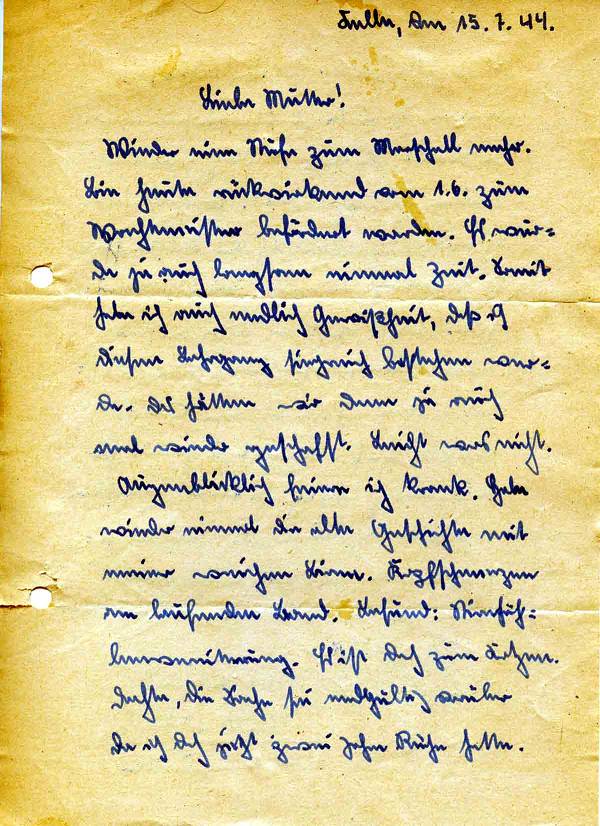 Am 15.7.44.
Liebe Mutter!
Wieder eine Stufe zum Marschall mehr.
Bin heute rückwirkend vom 1.6. zum
Wachtmeister befördert worden. Es wur=
de ja auch langsam einmal Zeit. Somit
habe ich auch endlich Gewißheit, daß ich
diesen Lehrgang siegreich bestehen wer=
de. Das hätten wir dann ja auch
mal wieder geschafft. Leicht war's nicht.
Augenblicklich feiere ich krank. Habe
wieder einmal die alte Geschichte mit
meiner weichen Birne. Kopfschmerzen
am laufenden Band. Befund: Stirnhöh=
lenvereiterung. Es ist doch zum Kotzen.
Dachte, die Sache sei endgültig vorüber
da ich doch jetzt zwei Jahre Ruhe hatte.